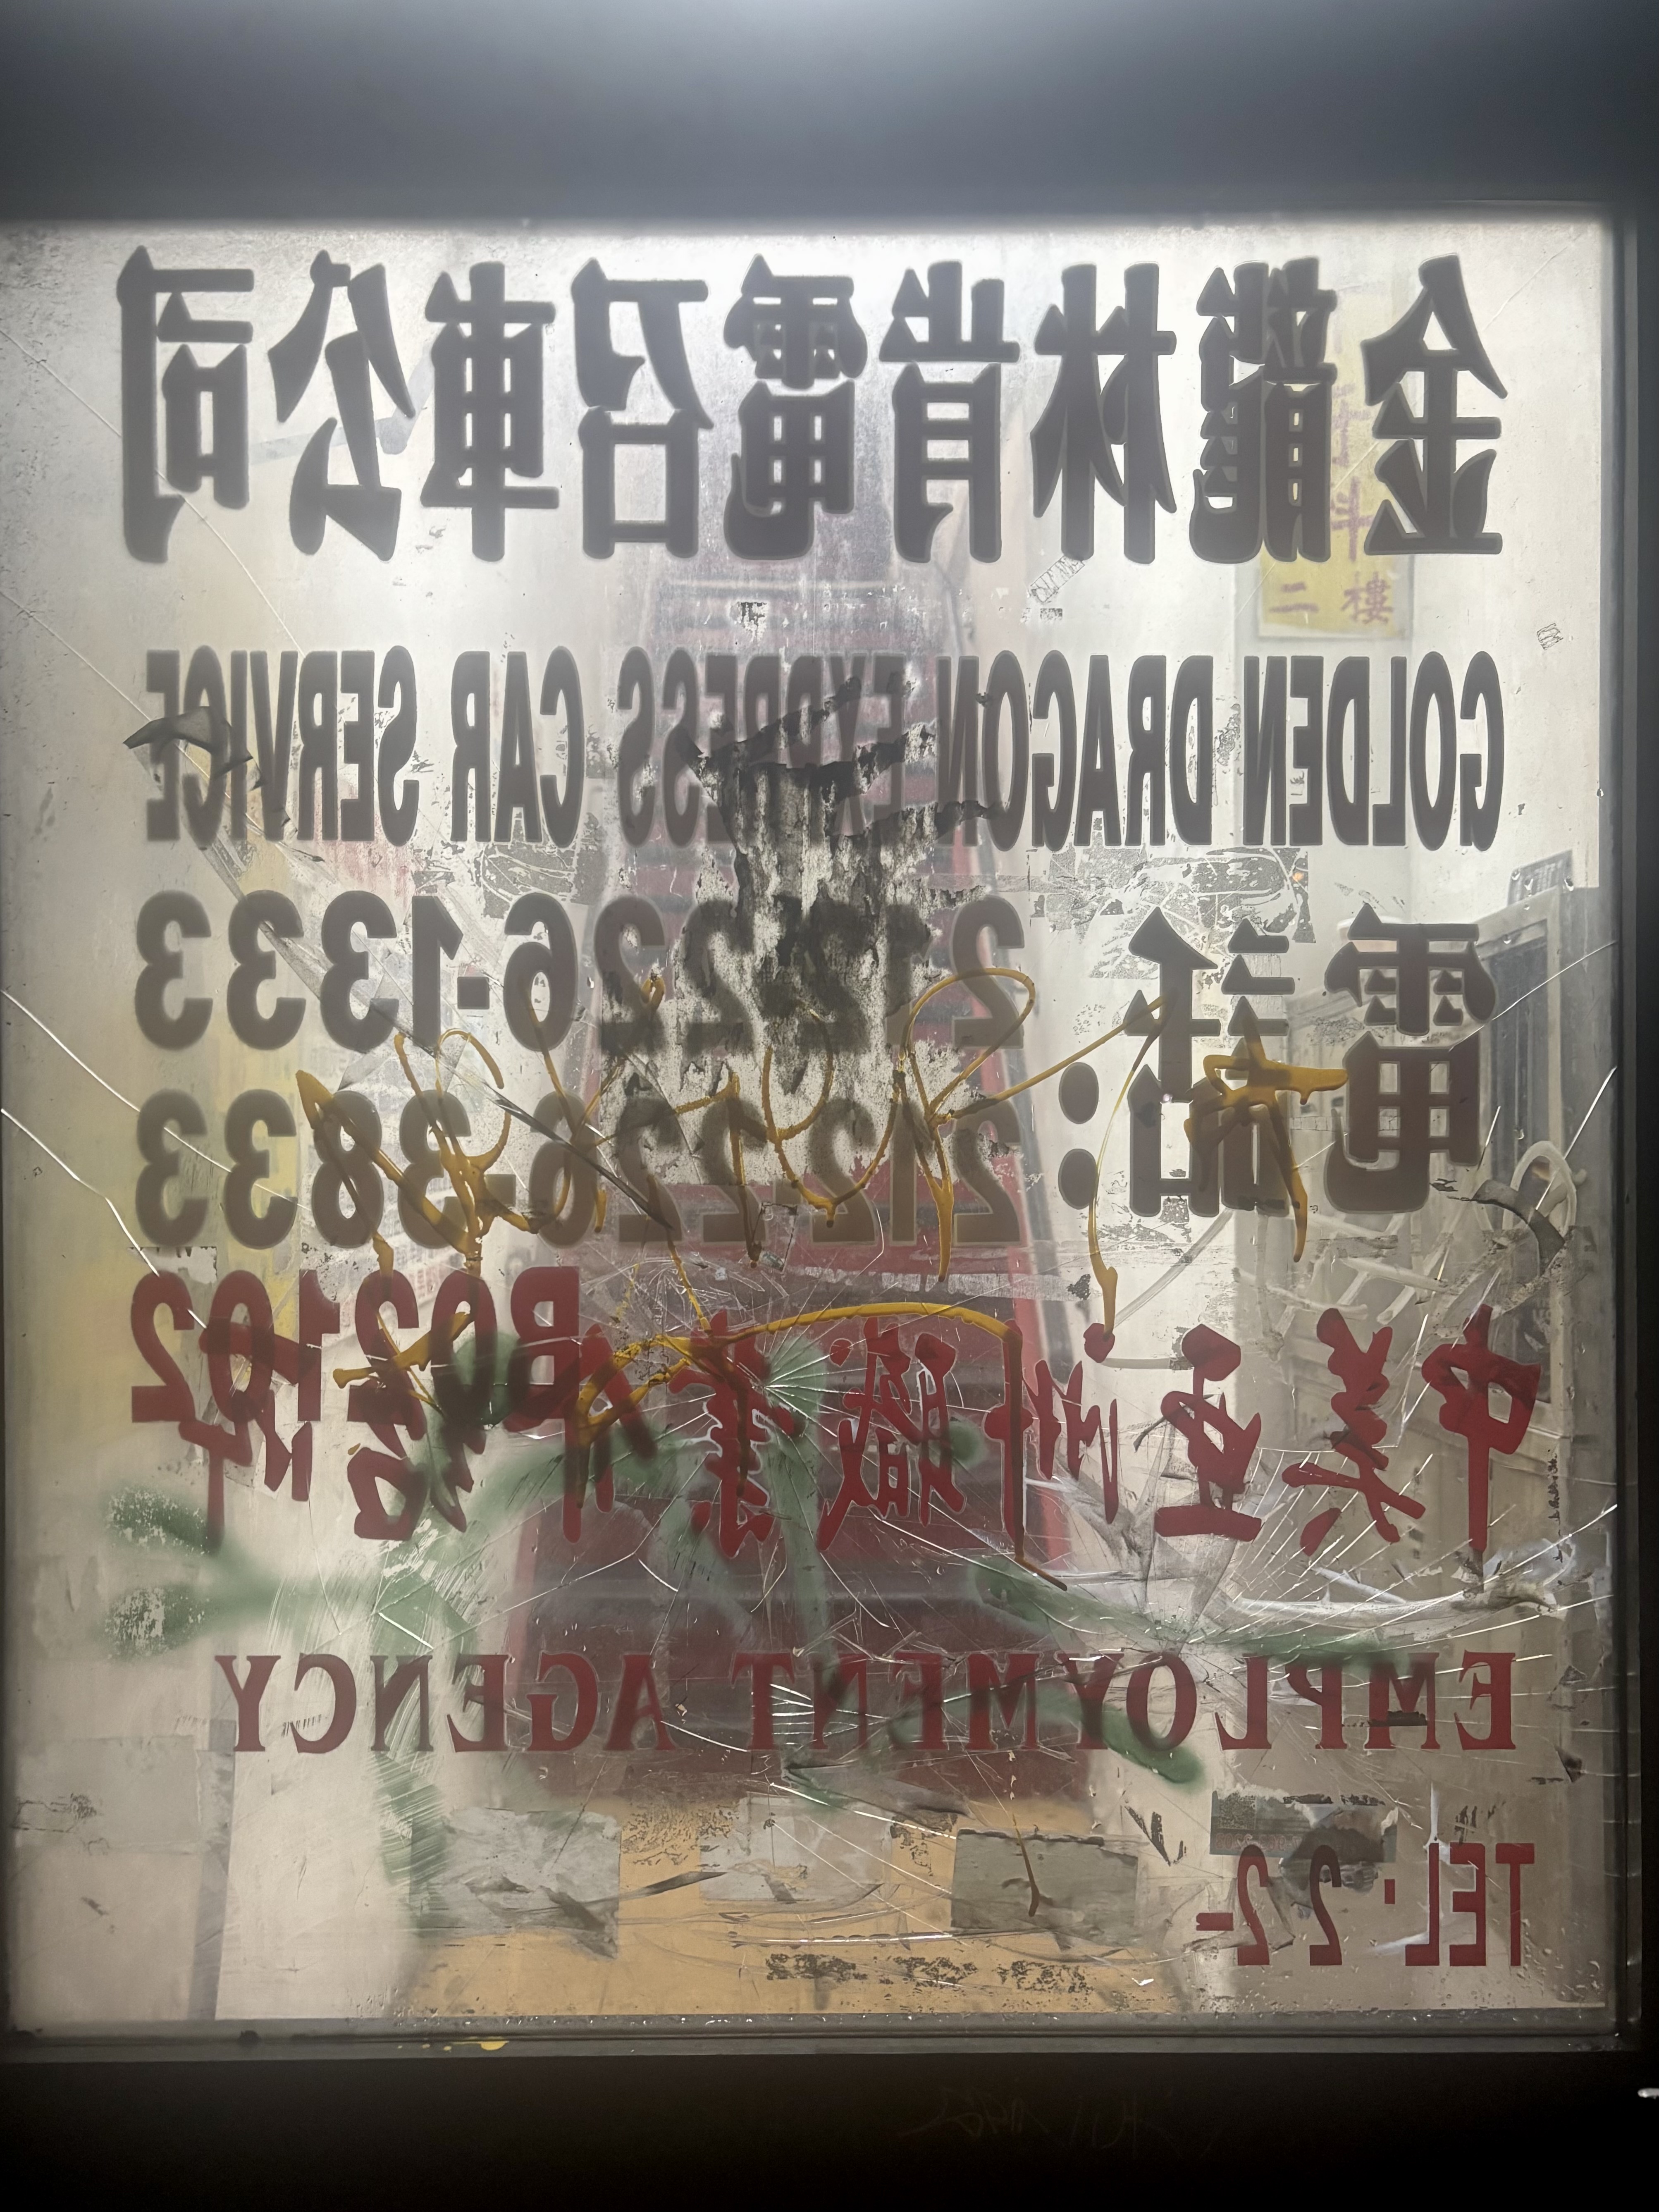 金龍林肯電召車公司
GOLDEN DRAGON EXPRESS CAR SERVICE
電話:
212-226-1333
212-226-3833
B02102
中美亞洲職業介紹所
EMPLOYMENT AGENCY
TEL· 2 2-
二樓